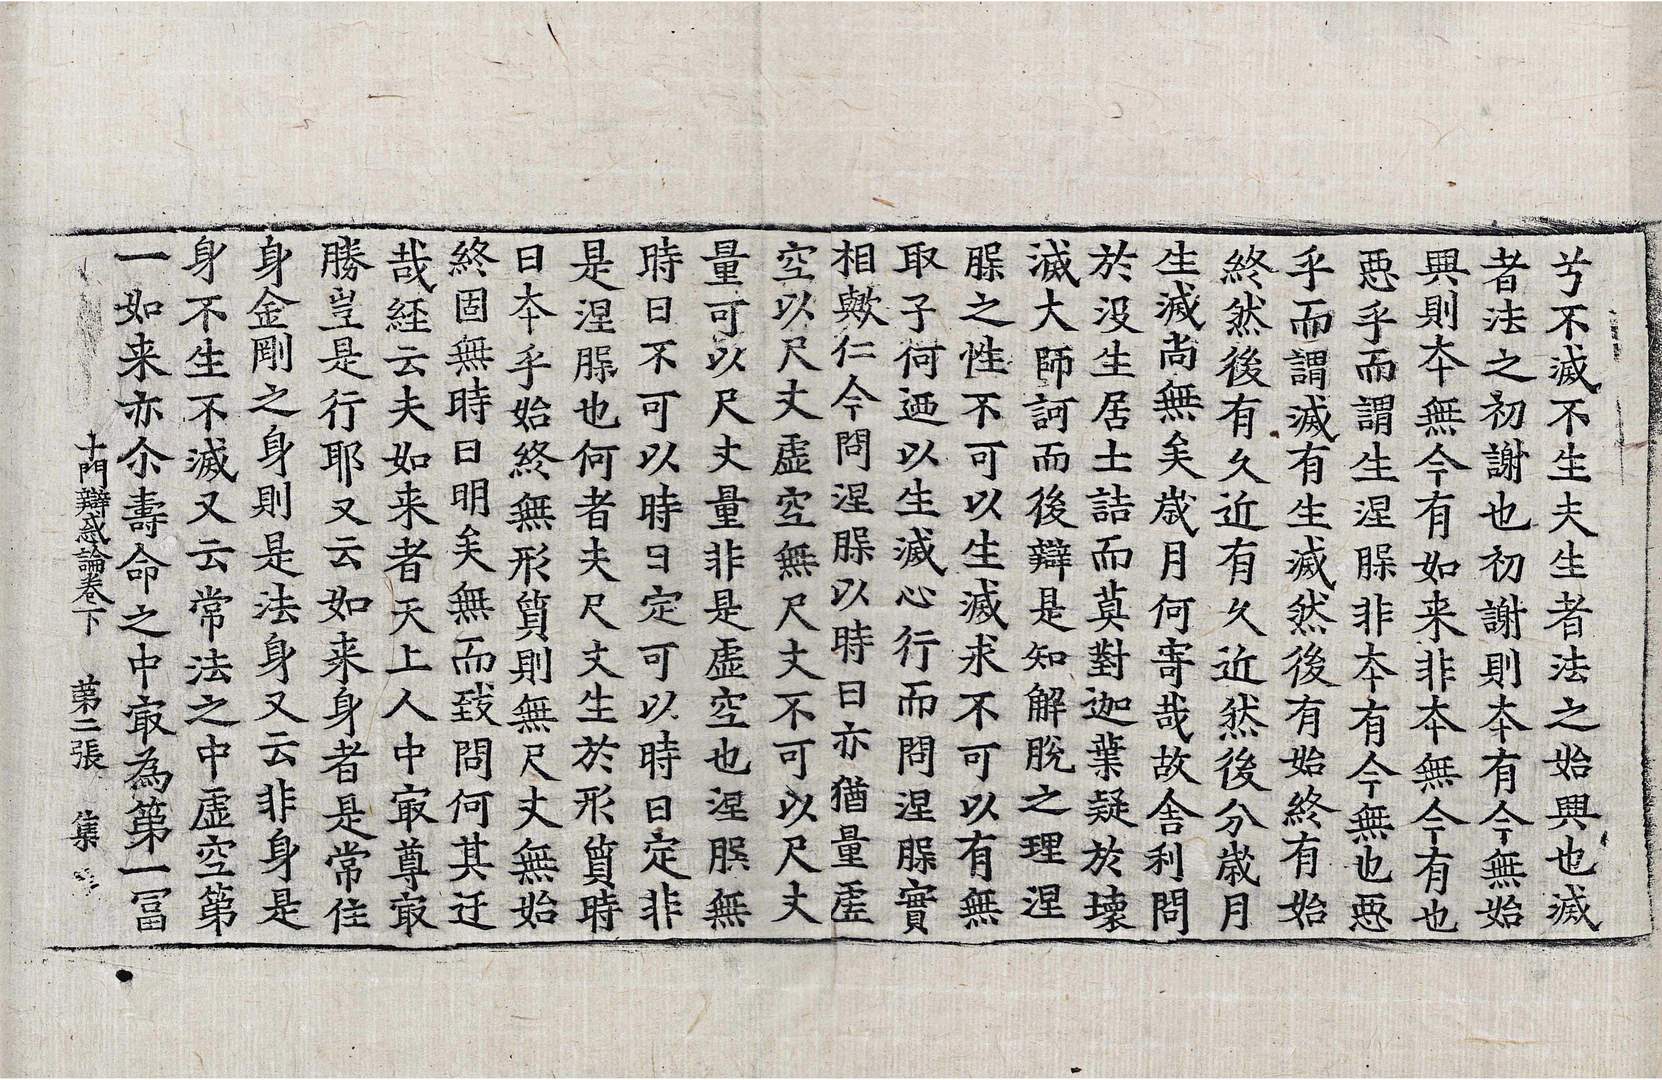 兮不滅不生夫生者法之始興也滅
者法之初謝也初謝則夲有今無始
興則夲無今有如来非夲無今有也
惡乎而謂生涅槃非夲有今無也惡
乎而謂滅有生滅然後有始終有始
終然後有久近有久近然後分歲月
生滅尚無矣歲月何寄哉故舎利問
於没生居士詰而莫對迦葉疑於壞
滅大師訶而後辯是知解脫之理涅
槃之性不可以生滅求不可以有無
取子何迺以生滅心行而問涅槃實
相歟仁今問涅槃以時日亦猶量虛
空以尺丈虛空無尺丈不可以尺丈
量可以尺丈量非是虛空也涅槃無
時日不可以時日定可以時日定非
是涅槃也何者夫尺丈生於形質時
日夲乎始終無形質則無尺丈無始
終固無時日明矣無而致問何其迂
哉経云夫如来者天上人中㝡尊㝡
勝豈是行耶又云如来身者是常住
身金剛之身則是法身又云非身是
身不生不滅又云常法之中虛空第
一如来亦尒壽命之中㝡為第一冨
十門辯惑論卷下　第二張　集